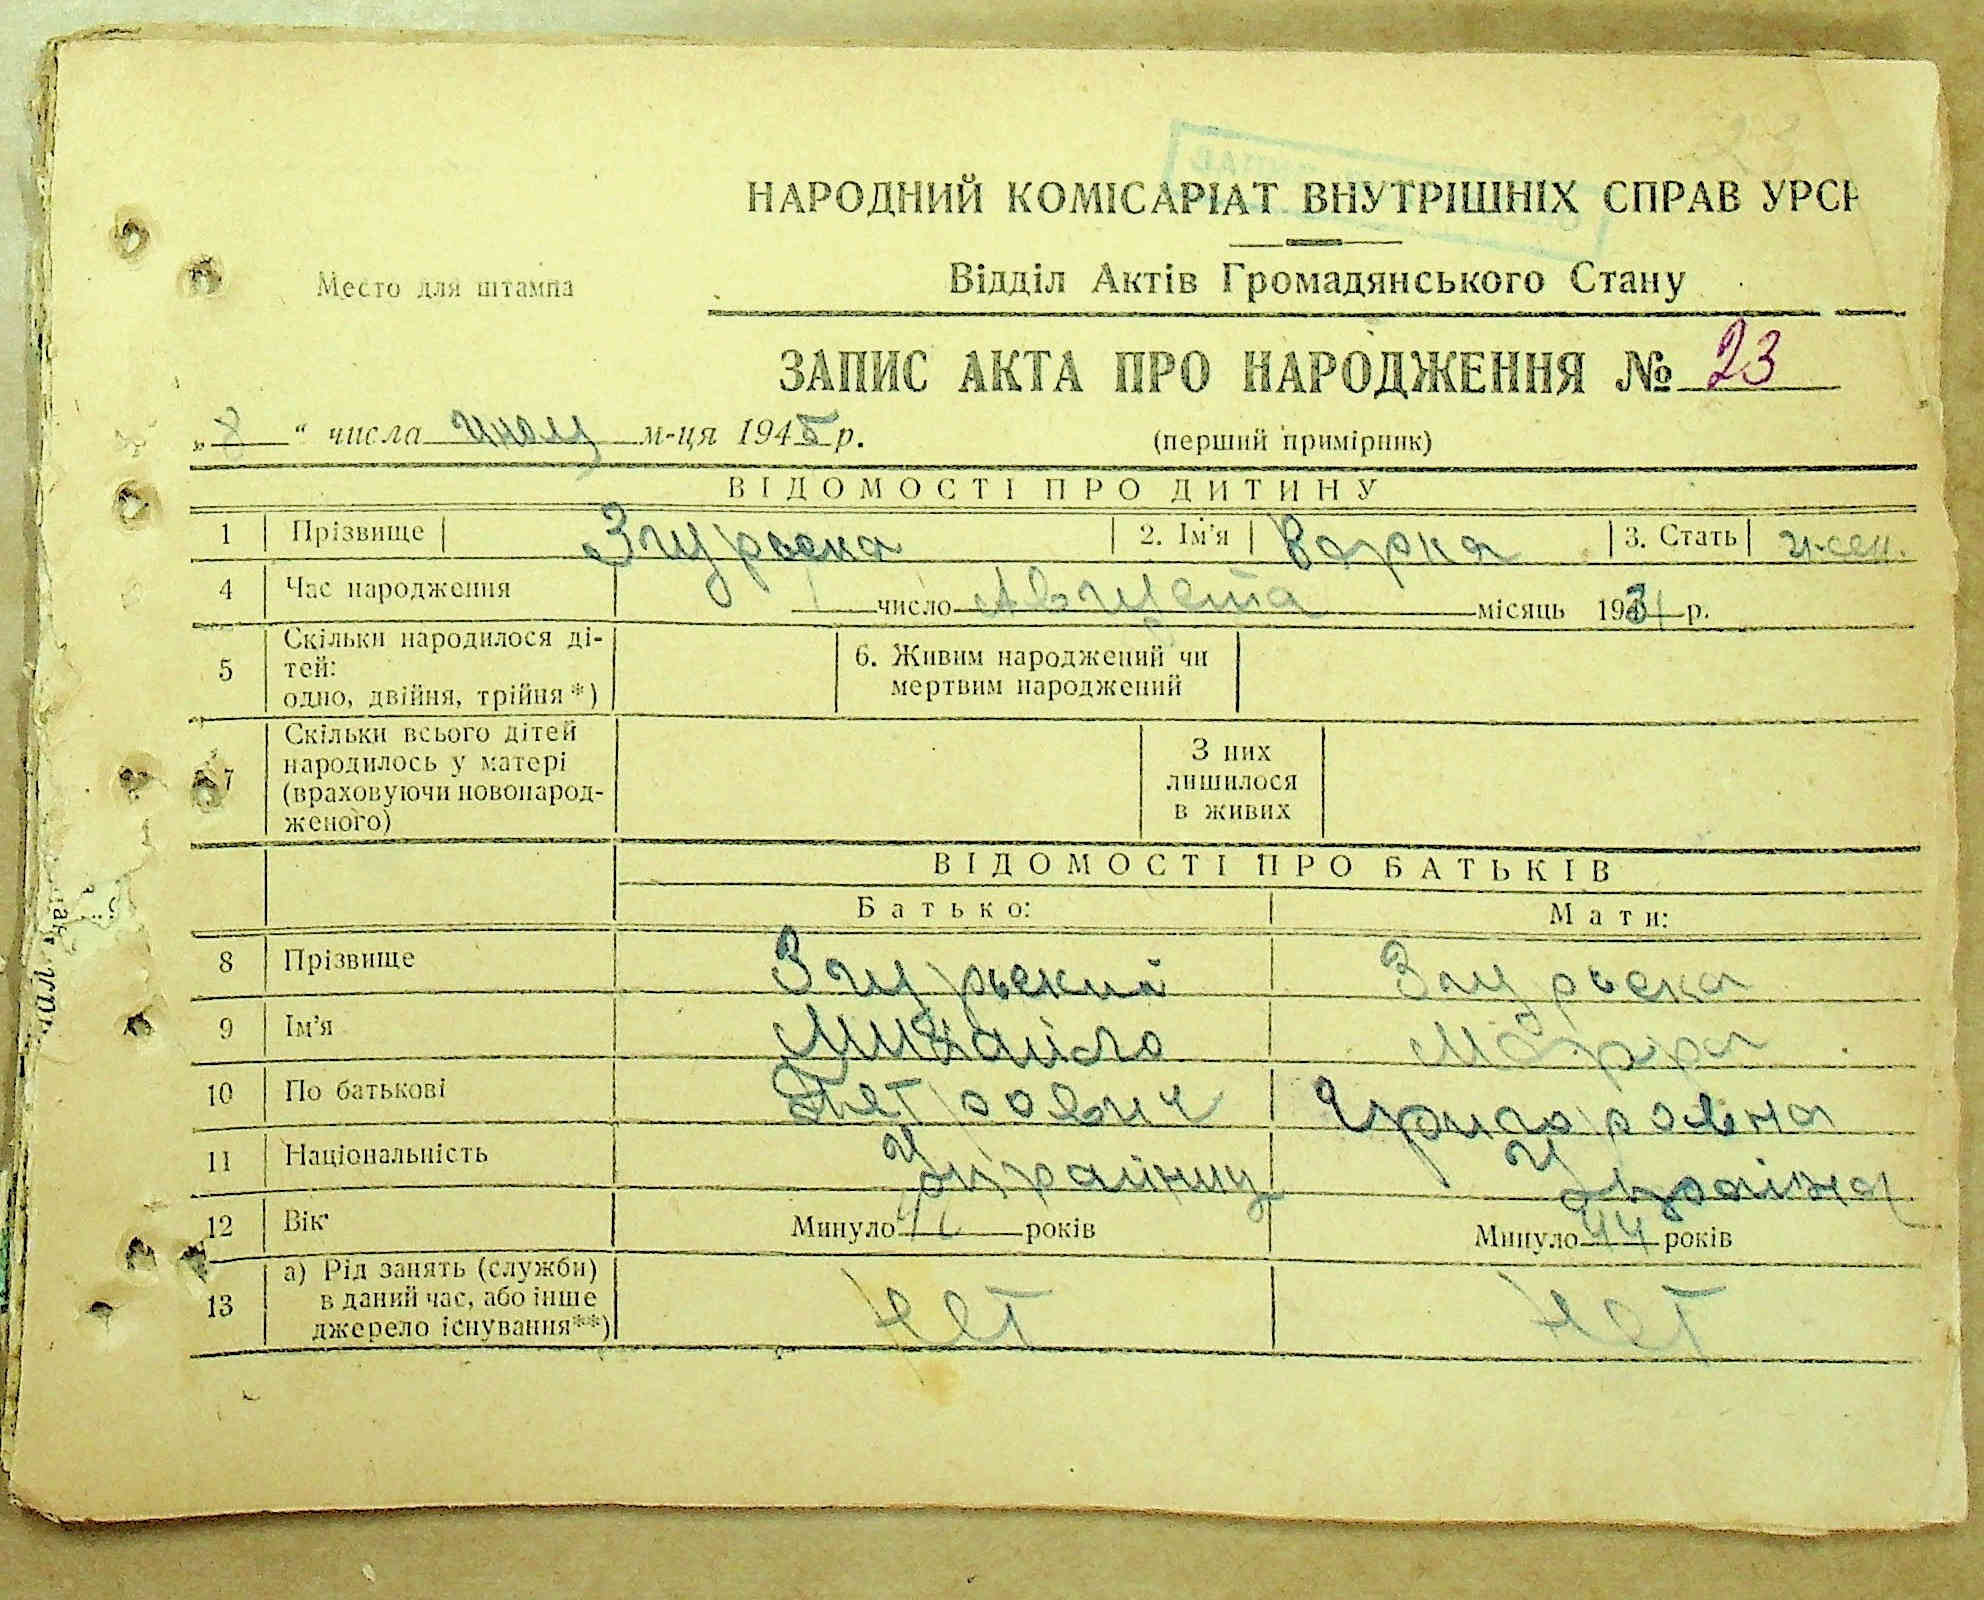 НАРОДНИЙ КОМІСАРІАТ ВНУТРІШНІХ СПРАВ УРСР
Место для штампа
Відділ Актів Громадянського Стану
ЗАПИС АКТА ПРО НАРОДЖЕННЯ № 23
„8“ числа июля м-ця 1945 р. (перший примірник)
ВІДОМОСТІ ПРО ДИТИНУ
1 Прізвище Згурьска 2. Ім'я Варка 3. Стать жен.
4 Час народження 1 число Августа місяць 1931 р.
5 Скільки народилося ді-
тей:
одно, двійня, трійня*)
6. Живим народжений чи
мертвим народжений
7 Скільки всього дітей
народилось у матері
(враховуючи новонарод-
женого)
З них
лишилося
в живих
ВІДОМОСТІ ПРО БАТЬКІВ
Батько: Мати:
8 Прізвище Згурьский Згурьска
9 Ім'я Михайло Марфа
10 По батькові Петрович Григоровна
11 Національність Украйнец Украіна
12 Вік Минуло років Минуло 44 років
13 а) Рід занять (служби)
в даний час, або інше
джерело існування**)
нет нет